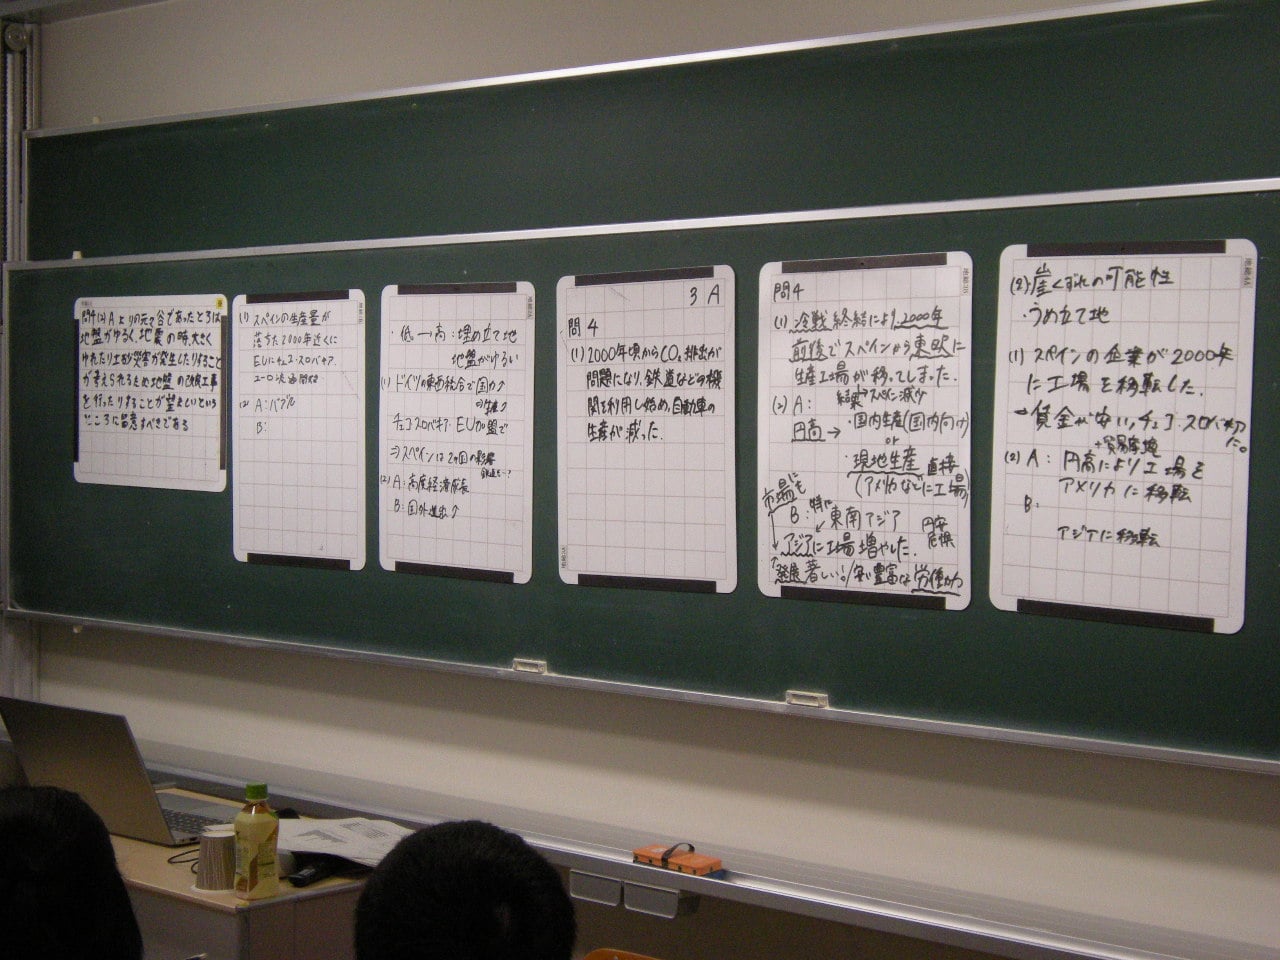 問4(2)Aよりの元々谷であったところは
地盤がゆるく、地震の時、大きく
ゆれたり土砂災害が発生したりすること
が考えられるため地盤の改良工事
を行ったりすることが望ましいという
ところに留意すべきである
(1) スペインの生産量が
落ちた2000年近くに
EUにチェコ・スロバキア
(2) A: バブル
B:
・低→高:埋め立て地
地盤がゆるい
(1) ドイツの東西統合で国力↑
⇒生産↑
チェコスロバキア・EU加盟で
⇒スペインは2ヶ国の影響
(2) A: 高度経済成長
B: 国外進出↑
3 A
問4
(1) 2000年頃からCO₂排出が
問題になり、鉄道などの機
関を利用し始め、自動車の
生産が減った.
問4
(1) 冷戦終結により、2000年
前後でスペインから東欧に
生産工場が移ってしまった.
結果→スペインに減少
(2) A:
円高→ ・国内生産(国内向け)
or
・現地生産 直接
(アメリカなどに工場)
市場にも
B: 特に
東南アジア
アジアに工場増やした.
発展著しい!/安い豊富な労働力
(2)・崖くずれの可能性
・うめ立て地
(1) スペインの企業が2000年
に工場を移転した.
→賃金が安い,チェコ・スロバキアに
(2) A: 円高により工場を
アメリカに移転
B:
アジアに移転